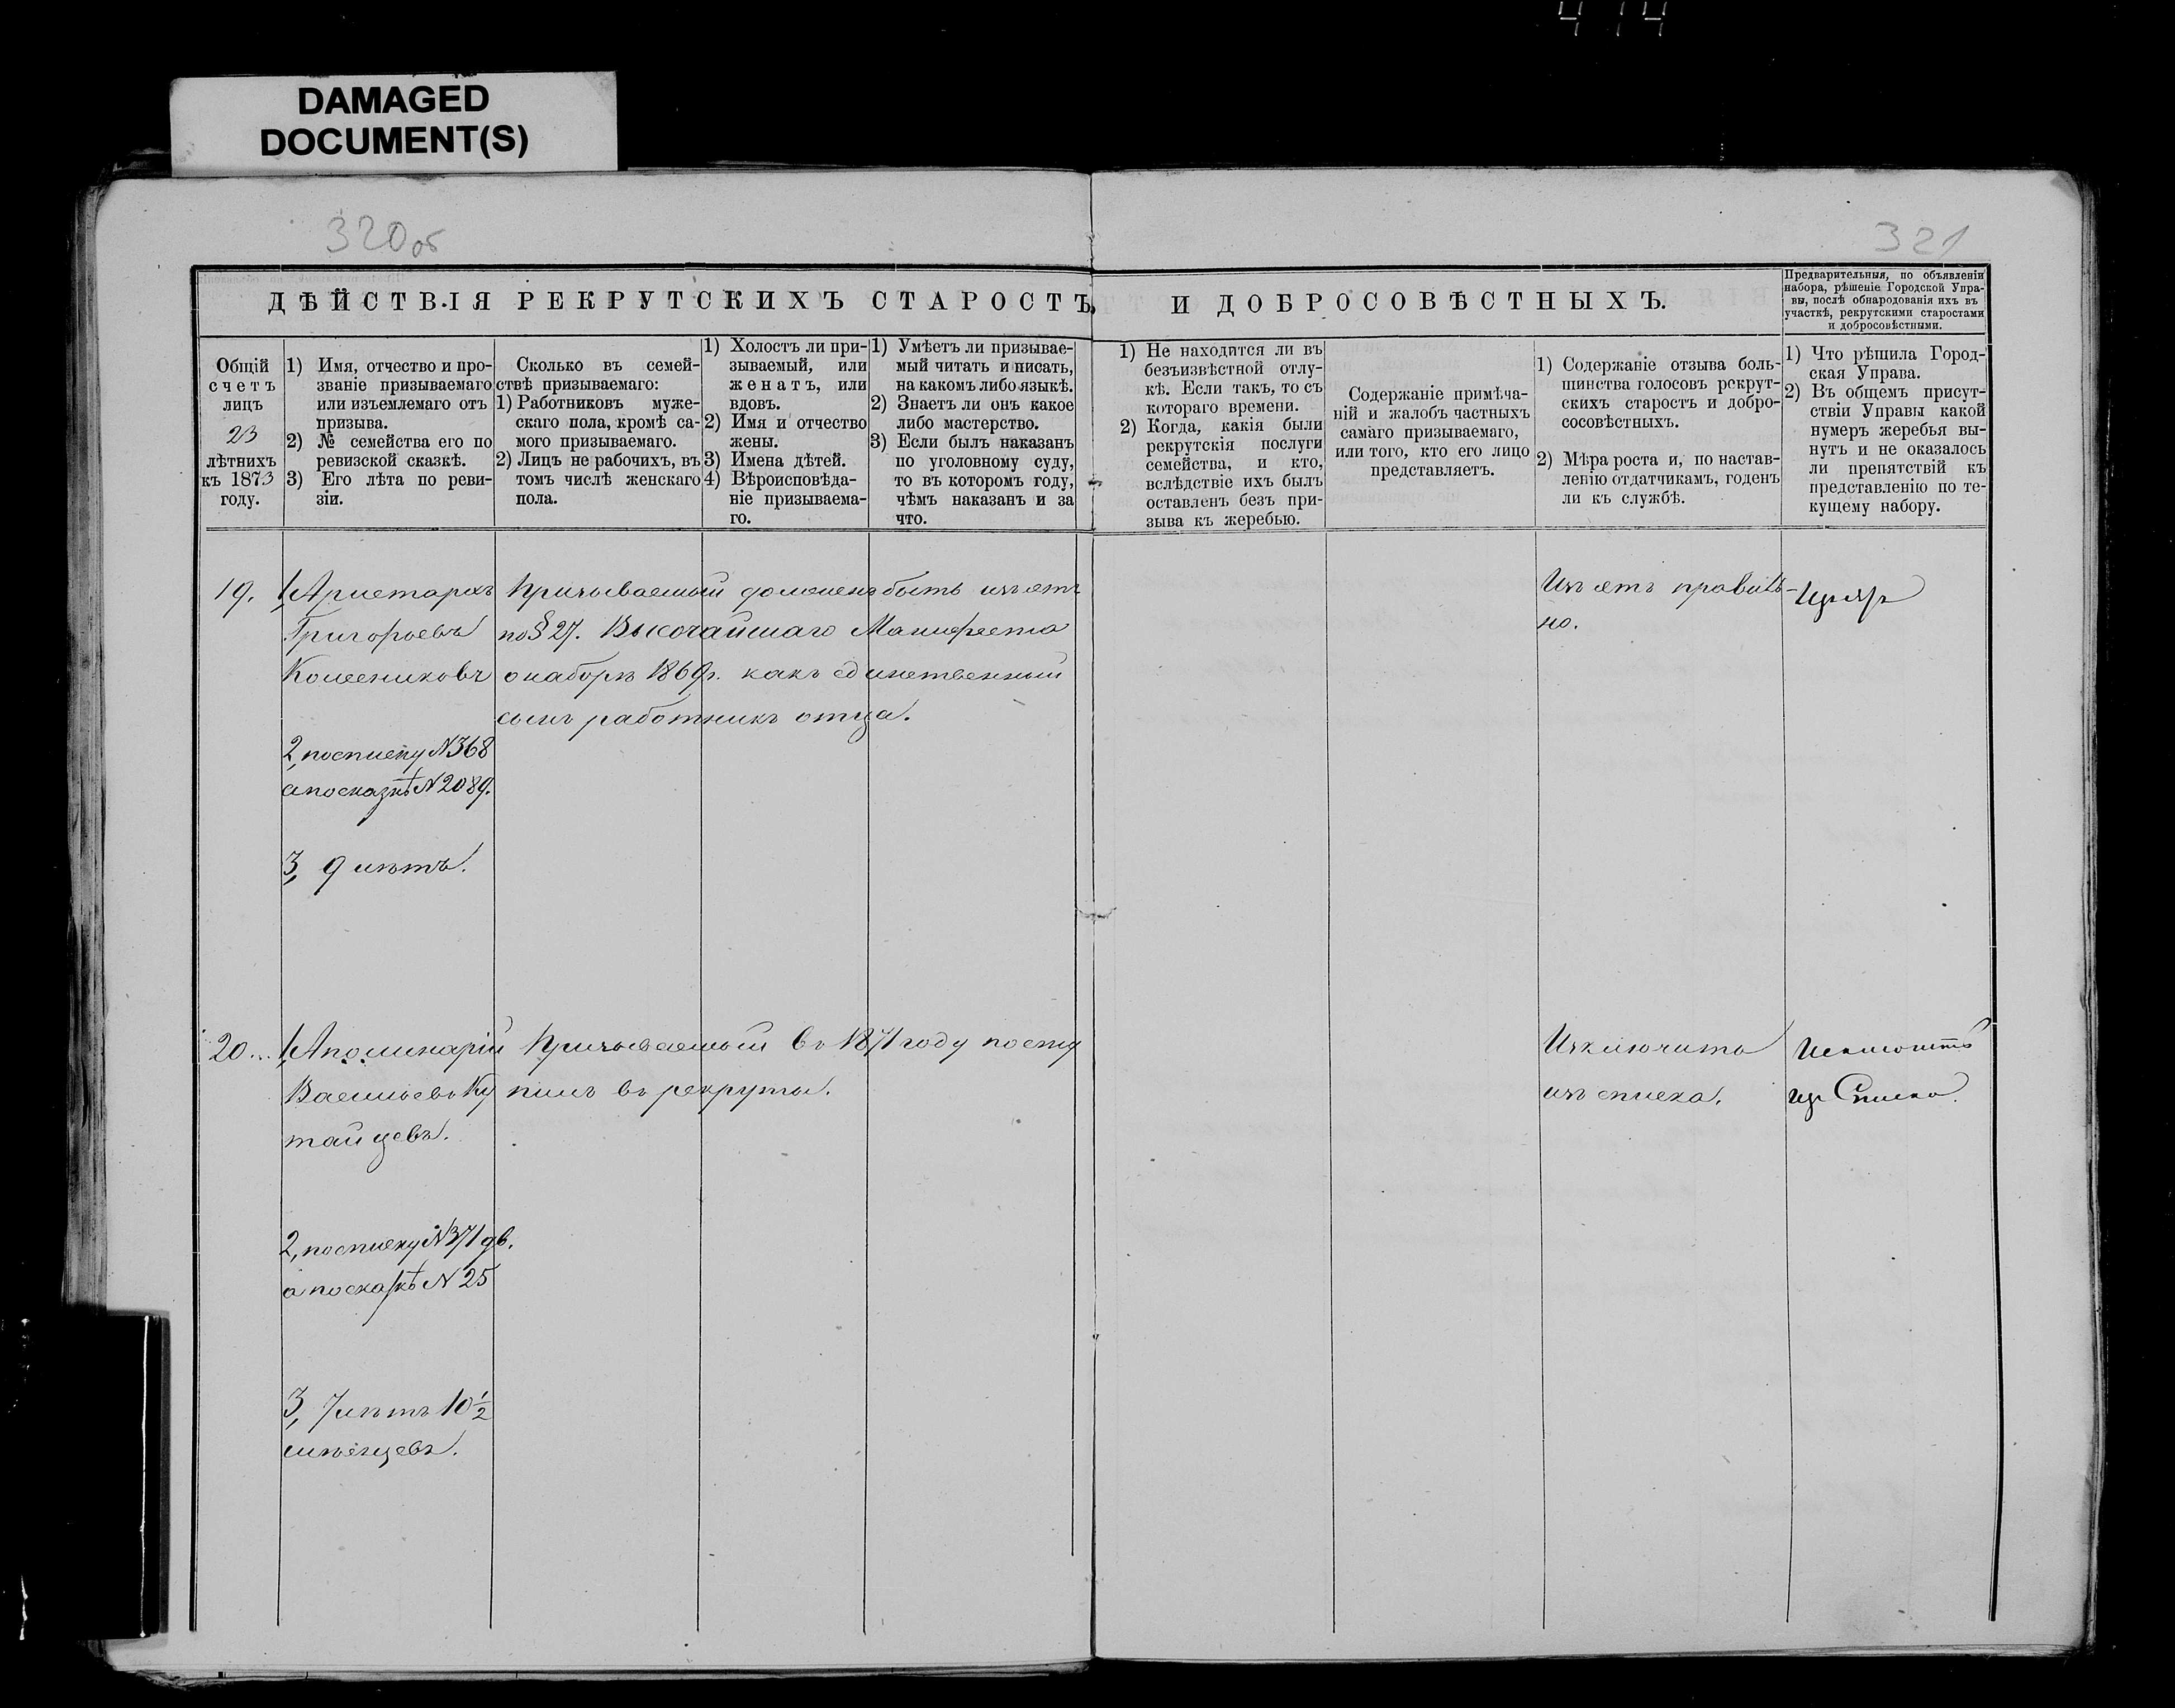 414
DAMAGED
DOCUMENT(S)
320об
321
ДѢЙСТВІЯ РЕКРУТСКИХЪ СТАРОСТЪ И ДОБРОСОВѢСТНЫХЪ.
Предварительныя, по объявленіи
набора, рѣшеніе Городской Упра-
вы, послѣ обнародованія ихъ въ
участкѣ, рекрутскими старостами
и добросовѣстными.
Общій
счетъ
лицъ
23
лѣтнихъ
къ 1873
году.
1) Имя, отчество и про-
званіе призываемаго
или изъемлемаго отъ
призыва.
2) № семейства его по
ревизской сказкѣ.
3) Его лѣта по реви-
зіи.
Сколько въ семей-
ствѣ призываемаго:
1) Работниковъ муже-
скаго пола, кромѣ са-
мого призываемаго.
2) Лицъ не рабочихъ, въ
томъ числѣ женскаго
пола.
1) Холостъ ли при-
зываемый, или
женатъ, или
вдовъ.
2) Имя и отчество
жены.
3) Имена дѣтей.
4) Вѣроисповѣда-
ніе призываема-
го.
1) Умѣетъ ли призывае-
мый читать и писать,
на какомъ либо языкѣ.
2) Знаетъ ли онъ какое
либо мастерство.
3) Если былъ наказанъ
по уголовному суду,
то въ которомъ году,
чѣмъ наказанъ и за
что.
1) Не находится ли въ
безъизвѣстной отлу-
кѣ. Если такъ, то съ
котораго времени.
2) Когда, какія были
рекрутскія послуги
семейства, и кто,
вслѣдствіе ихъ былъ
оставленъ безъ при-
зыва къ жеребью.
Содержаніе примѣча-
ній и жалобъ частныхъ
самаго призываемаго,
или того, кто его лицо
представляетъ.
1) Содержаніе отзыва боль-
шинства голосовъ рекрут-
скихъ старостъ и добро-
сосовѣстныхъ.
2) Мѣра роста и, по настав-
ленію отдатчикамъ, годенъ
ли къ службѣ.
1) Что рѣшила Город-
ская Управа.
2) Въ общемъ присут-
ствіи Управы какой
нумеръ жеребья вы-
нутъ и не оказалось
ли препятствій къ
представленію по те-
кущему набору.
19. 1, Аристархъ
Григорьевъ
Колесниковъ
2, по списку N368
а по сказкѣ N2089.
3, 9 лѣтъ.
Призываемый долженъ быть изъятъ
по § 27. Высочайшаго Манифеста
о наборѣ 1869г. какъ единственный
сынъ работникъ отца.
Изъятъ правиль-
но.
20. 1, Аполинарій
Васильевъ Ки
тайцевъ.
2, по списку N371 дв.
а по сказкѣ N 25
3, 7 лѣтъ 10 1/2
мѣсяцевъ.
Призываемый въ 1871 году посту
пилъ въ рекруты.
Изключить
изъ списка.
Исключить
изъ Списка.